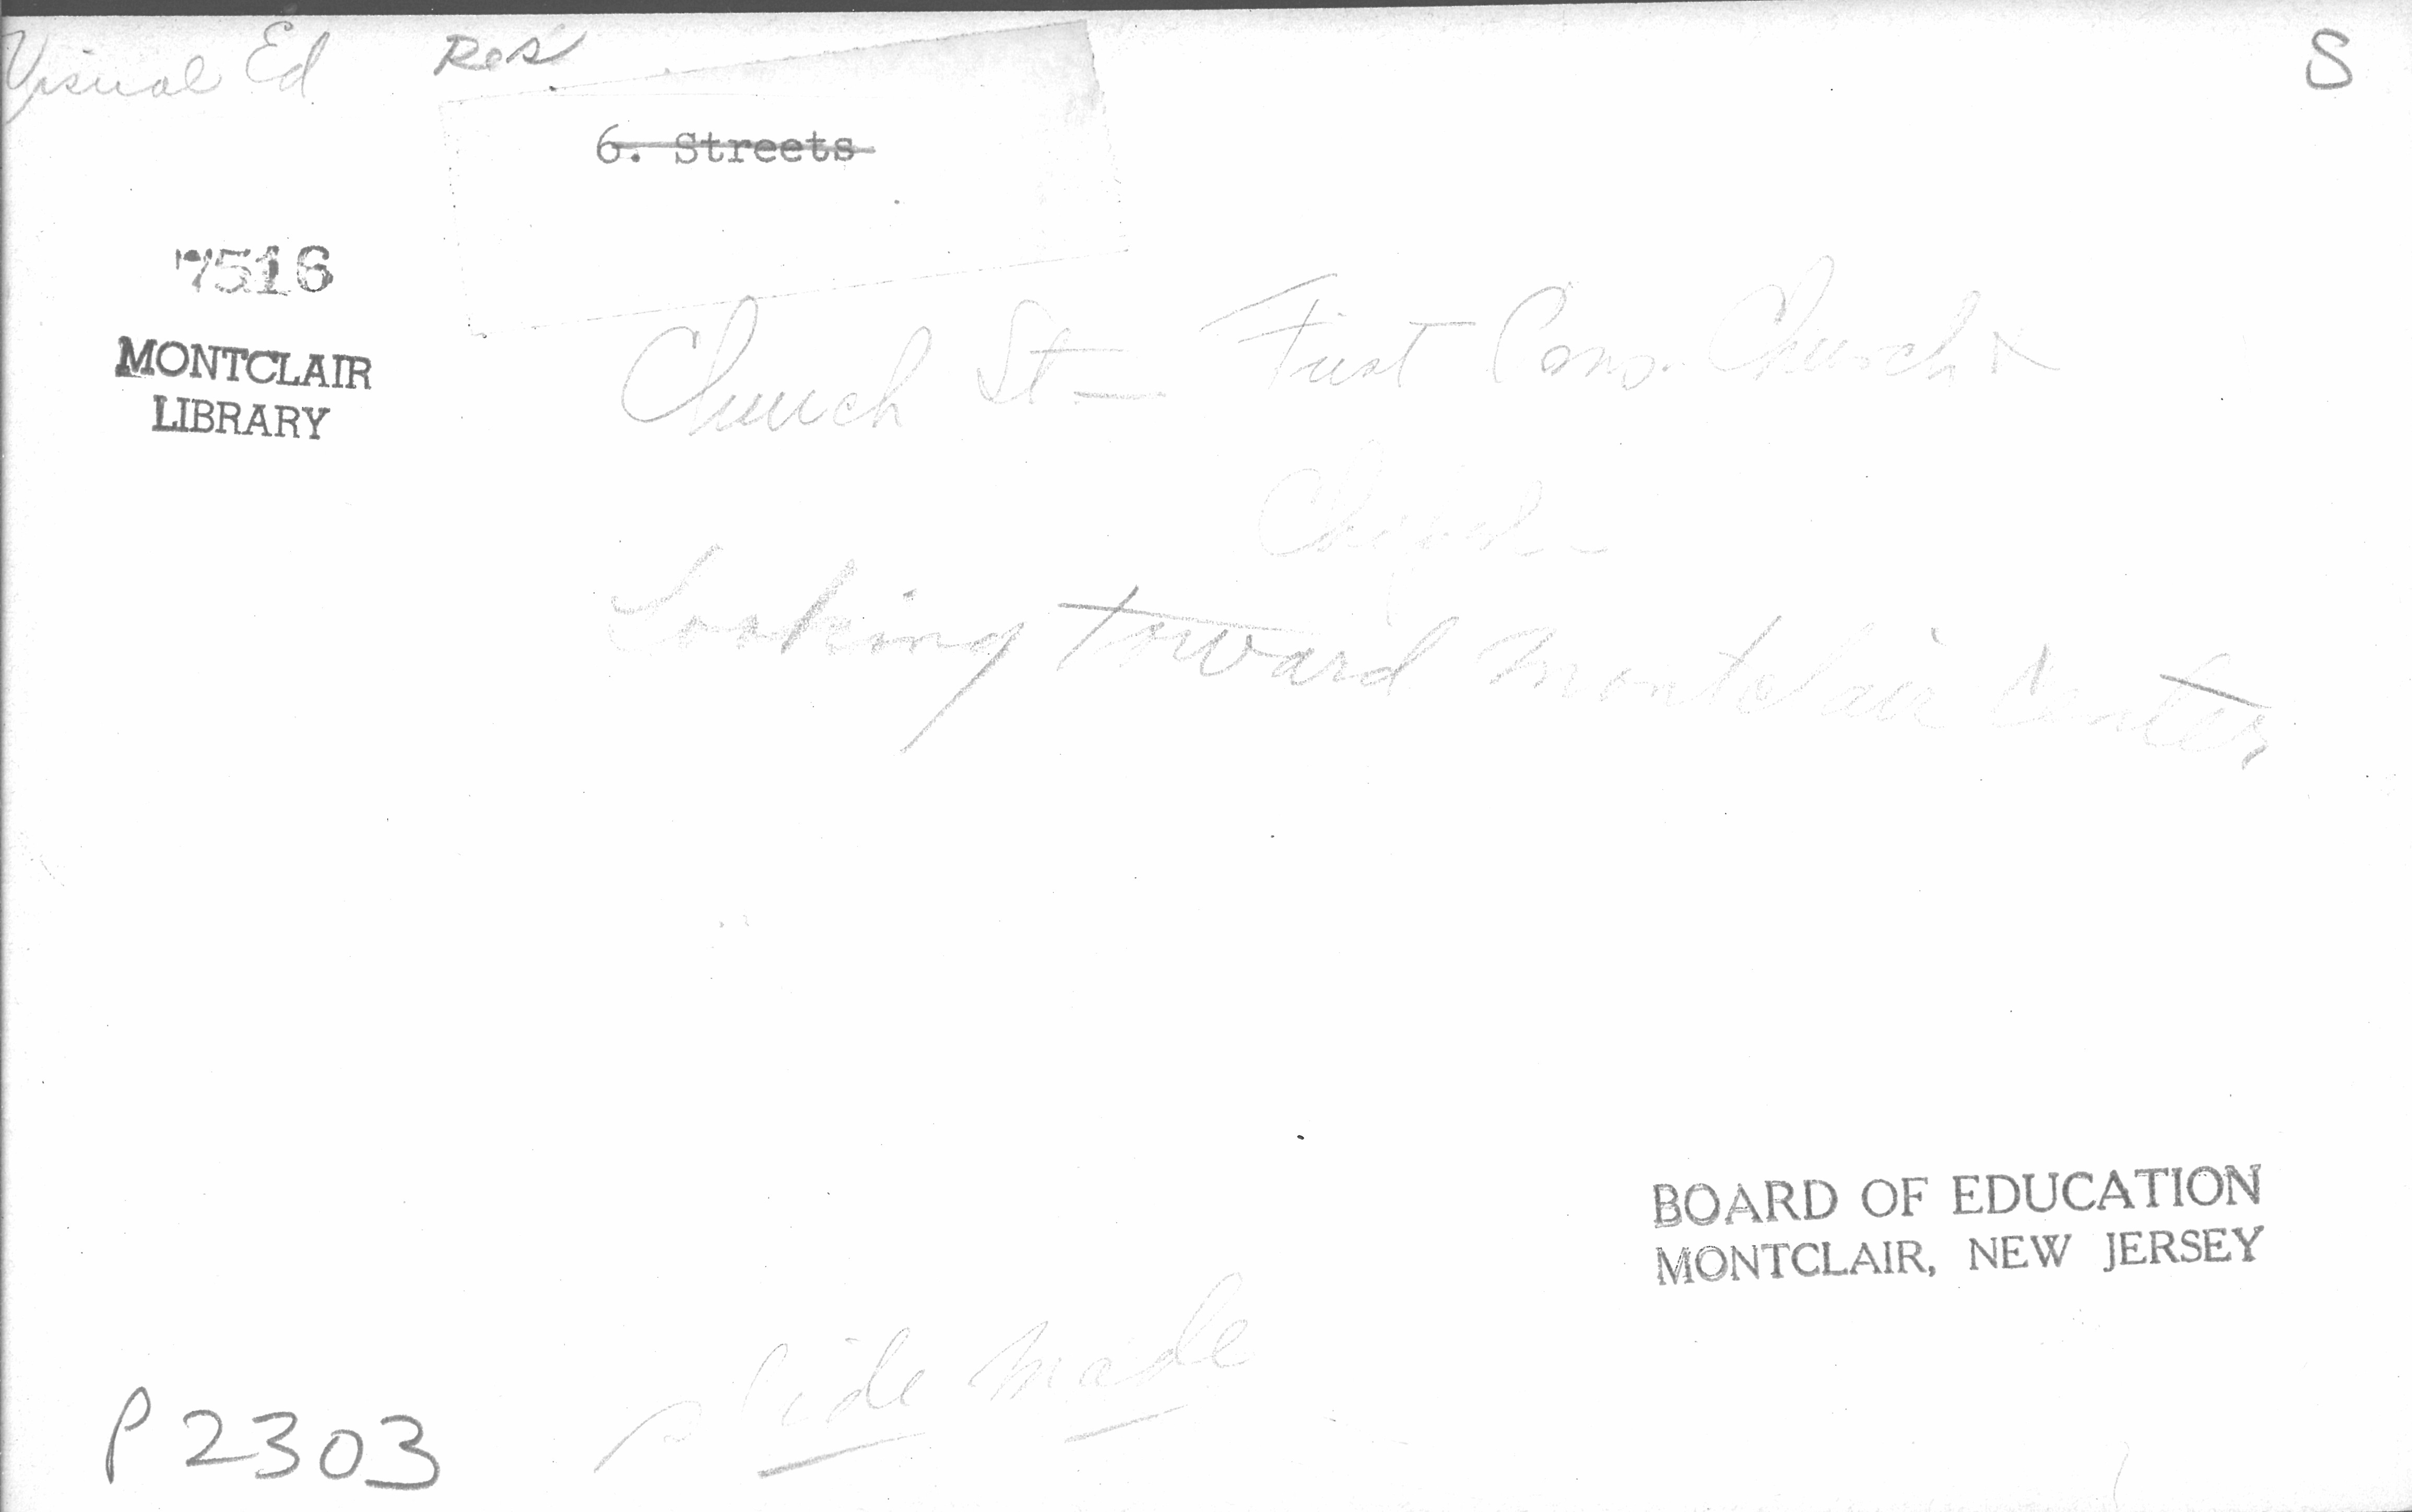 Visual Ed Res S
6. Streets
7516
MONTCLAIR
LIBRARY
Church St — First Cong. Church &
Church
Looking toward Montclair Center
BOARD OF EDUCATION
MONTCLAIR, NEW JERSEY
Slide Made
P2303